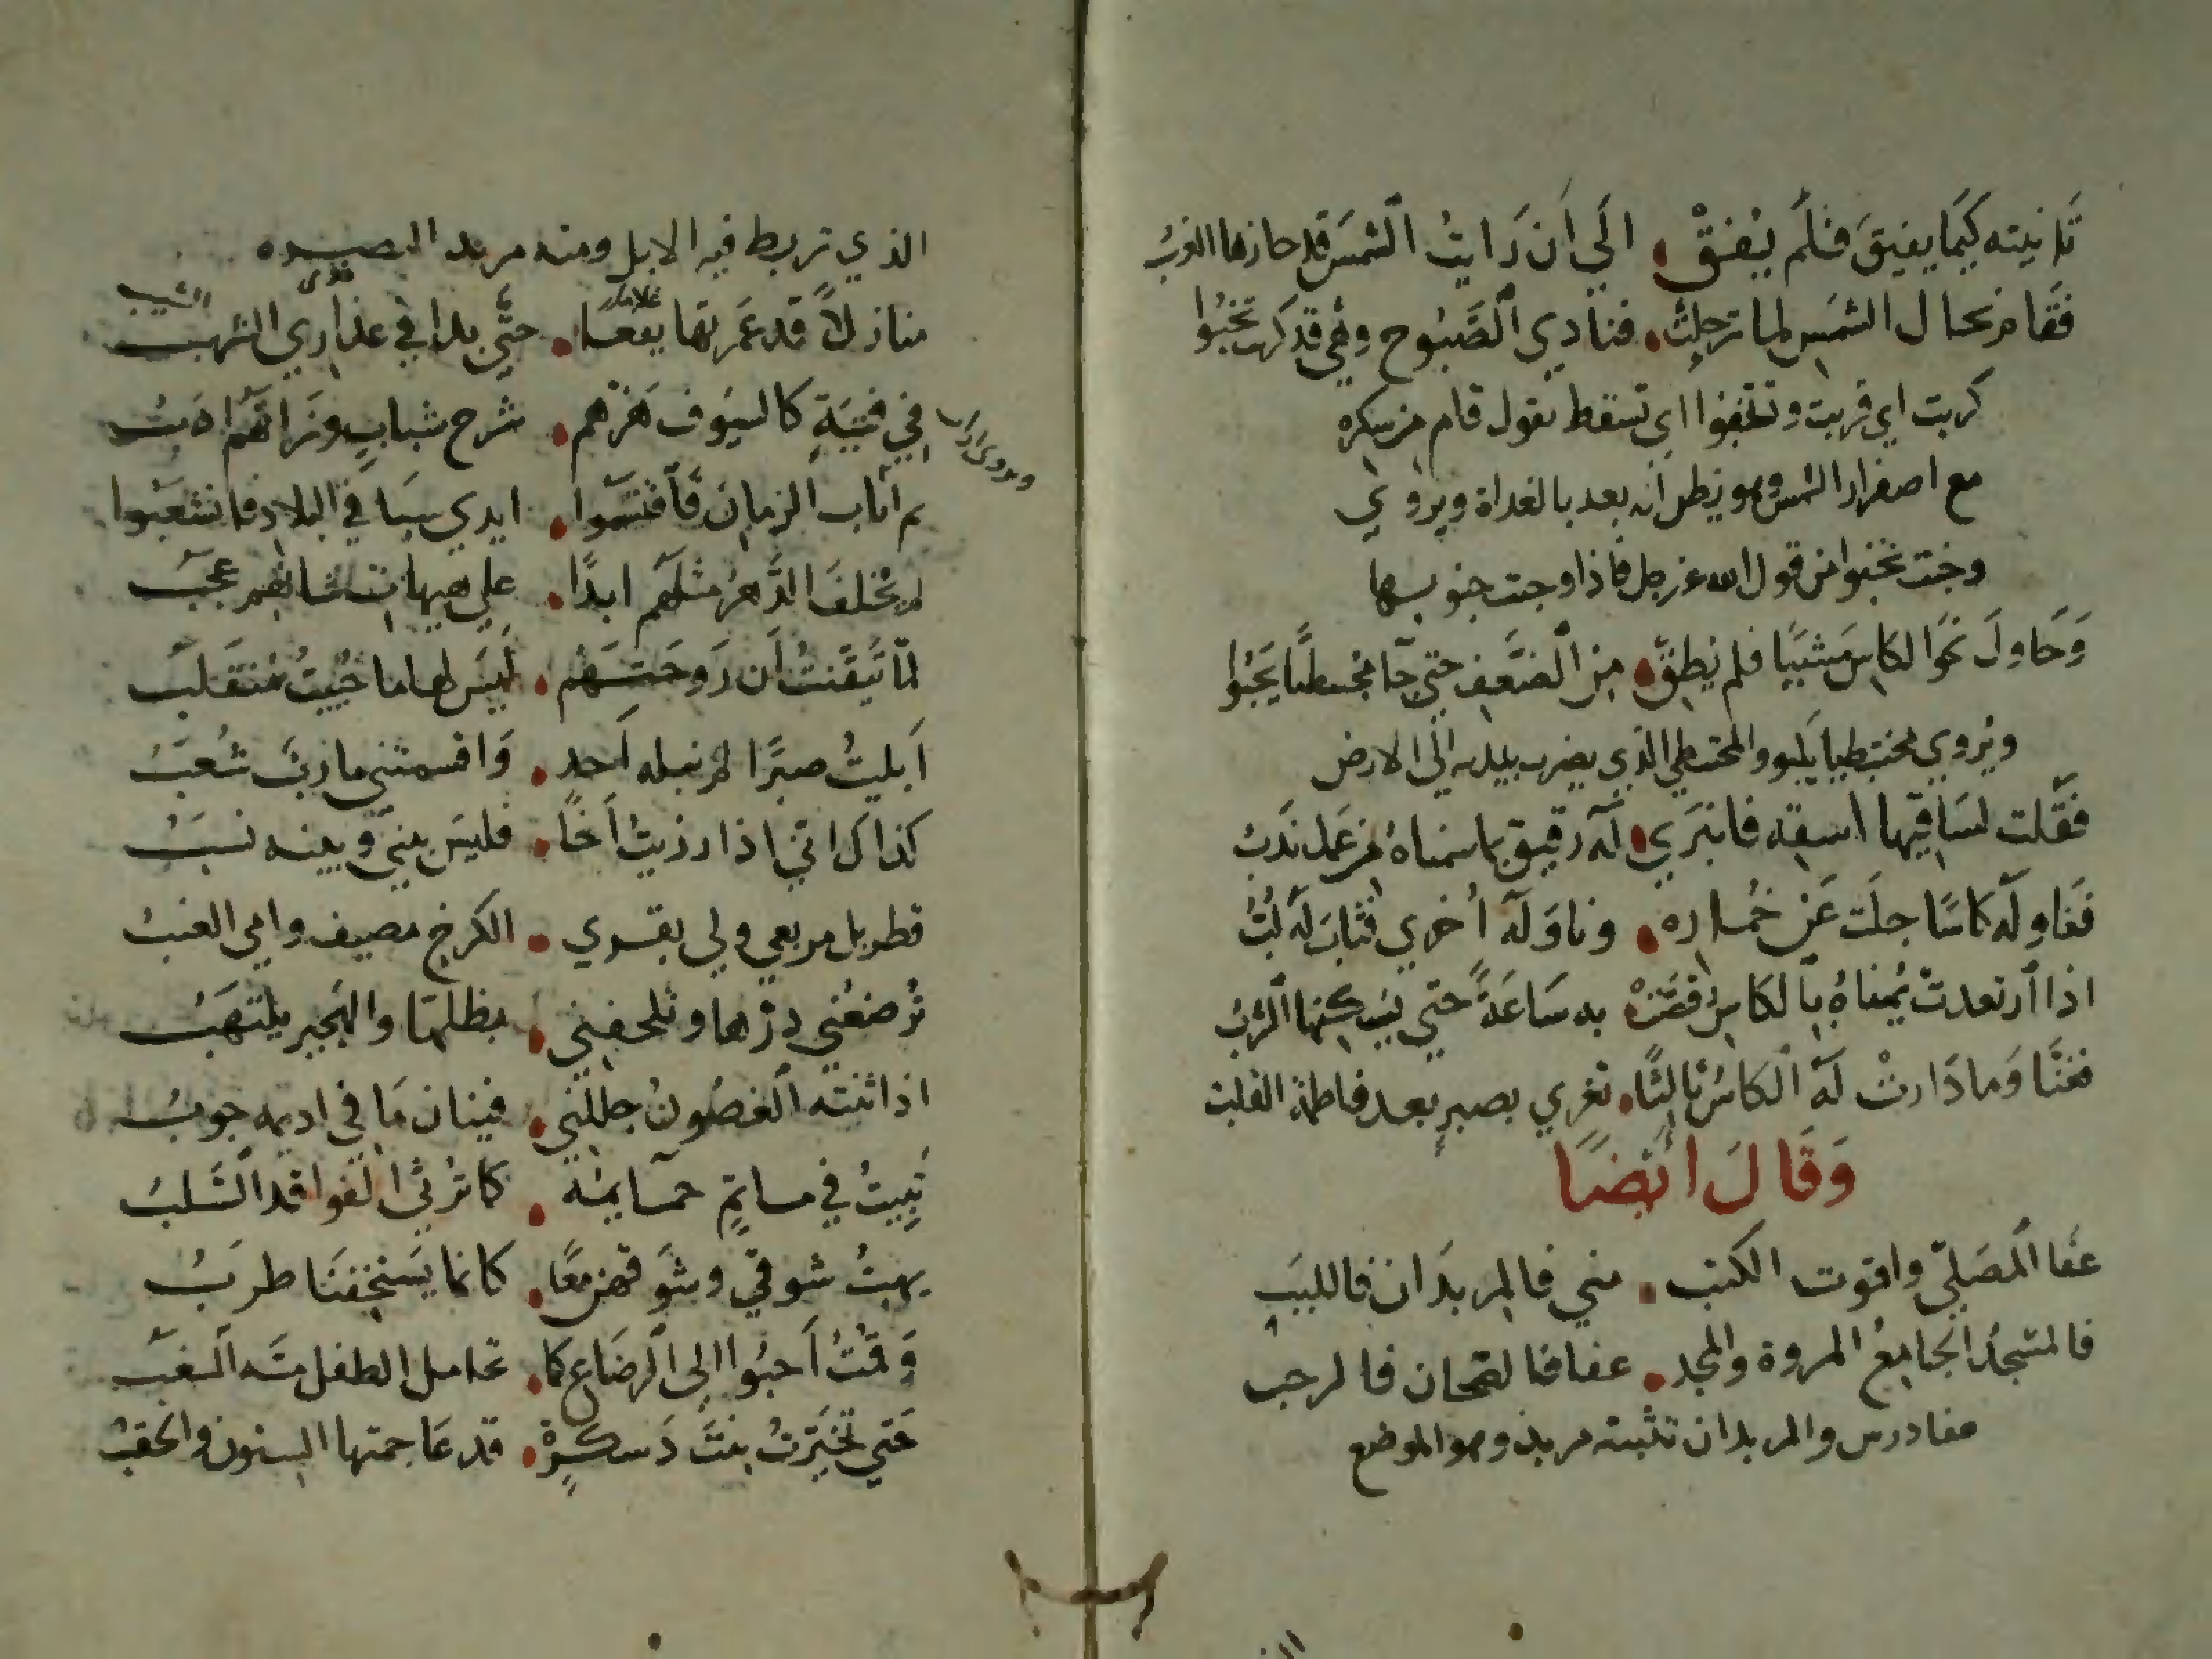 تانيته كيما يفيق فلم يفق الي ان رايت الشمس قد حازها الغرب
فقام يخال الشمس لما ترجلت فنادي الصبوح وهي قد كربت تخبوا
كربت اي قربت وتخبوا اي تسقط يقول قام من سكره
مع اصفرار الشمس وهو يظن انه بعد بالغداة ويروي
وجبت تخبوا من قول الله عز وجل فاذا وجبت جنوبها
وحاول نحو الكاس مشيا فلم يطق من الضعف حتي جا مختبطا يحبوا
ويروي مختبطيا يكبو والمختبطي الذي يضرب بيديه الي الارض
فقلت لساقيها اسقه فانبري له رفيق بما سمناه من عمل ندب
فناوله كاسا جلت عن خماره وناوله اخري فثاب له لب
اذا ارتعدت يمناه بالكاس رقصت به ساعة حتي يسكنها الشرب
فغنا وما دارت له الكاس ثالثا تعزي بصبر بعد فاطمة القلب
وقال ايضا
عفا المصلي واقوت الكثب مني فالمربدان فاللبب
فالمسجد الجامع المروة والمجد عفا فالصحان فالرحب
عفا درس والمربدان تثنية مربد وهو الموضع
الذي تربط فيه الابل ومنه مربد البصره
منازلا قد عمرتها يفعا حتي بدا في عذاري الشهب
غلاما
يروي
الشيب
في فتية كالسيوف هزهم شرخ شباب وزانهم ادب
ويروي
ثم اراب الزمان فاقتسموا ايدي سبا في البلاد فانشعبوا
لم يخلف الدهر مثلهم ابدا علي هيهات شانهم عجب
لما تيقنت ان روحتهم ليس لها ما حييت منقلب
ابليت صبرا لم يبله احد واقسمتني مارب شعب
كذاك اني اذا رزيت اخا فليس بيني وبينه نسب
قطربل مربعي ولي بقري الكرخ مصيف وامي العنب
ترضعني درها وتلحفني بظلها والهجير يلتهب
اذا ثنته الغصون جللني فينان ما في اديمه جوب
تبيت في ماتم حمايمه كما ترثي الفواقد السلب
يهب شوقي وشوقهن معا كانما يستخفنا طرب
وقمت احبوا الي الرضاع كما تحامل الطفل مسه السغب
حتي تخيرت بنت دسكرة قد عاجمتها السنون والحقب